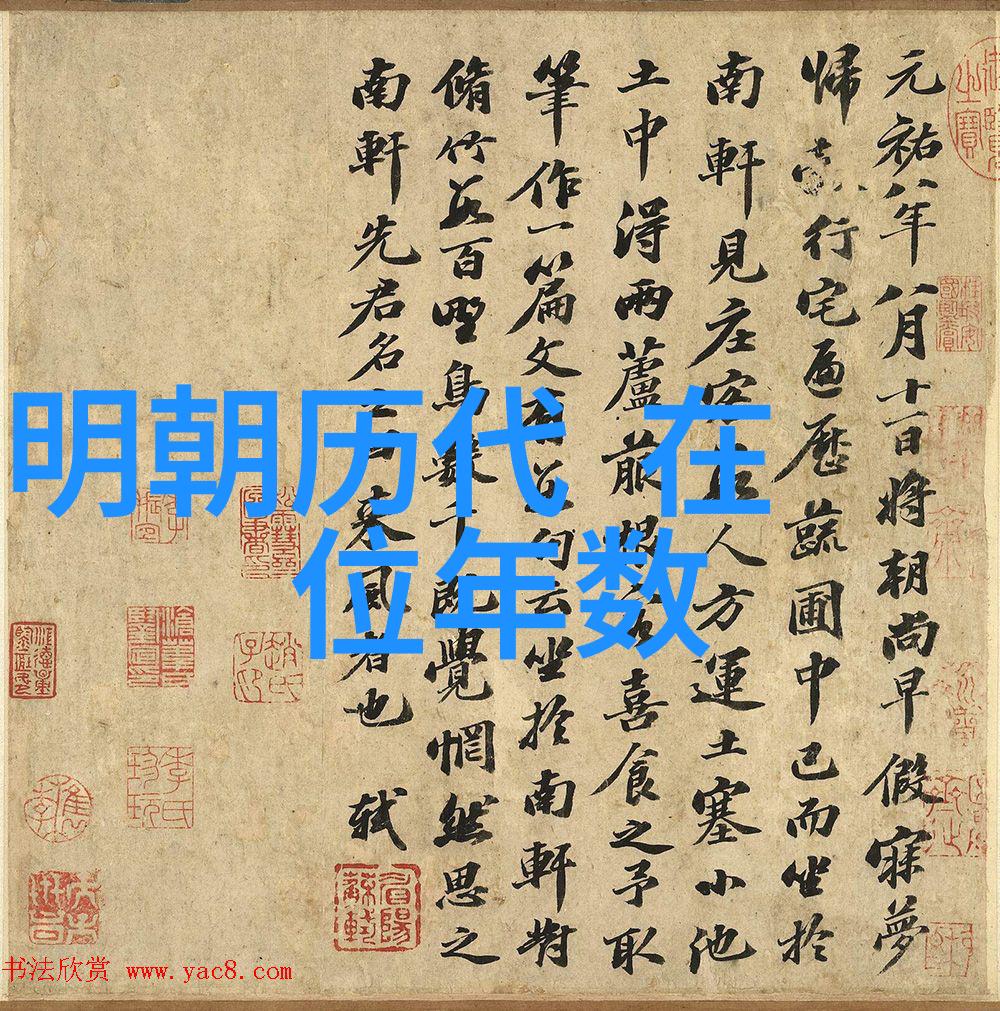 元祐八年八月十一日將朝尚早假寐夢
歸行宅遍歷蔬圃中已而坐於
南軒見庄客人方運土塞小池
土中得兩蘆菔根客喜食之予取
筆作一篇文有數句云坐於南軒對
脩竹數百野鳥數千既覺惘然思之
南軒先君名之曰來風者也 軾
眉陽蘇軾
明朝历代 在
位年数
书法欣赏 www.yac8.com